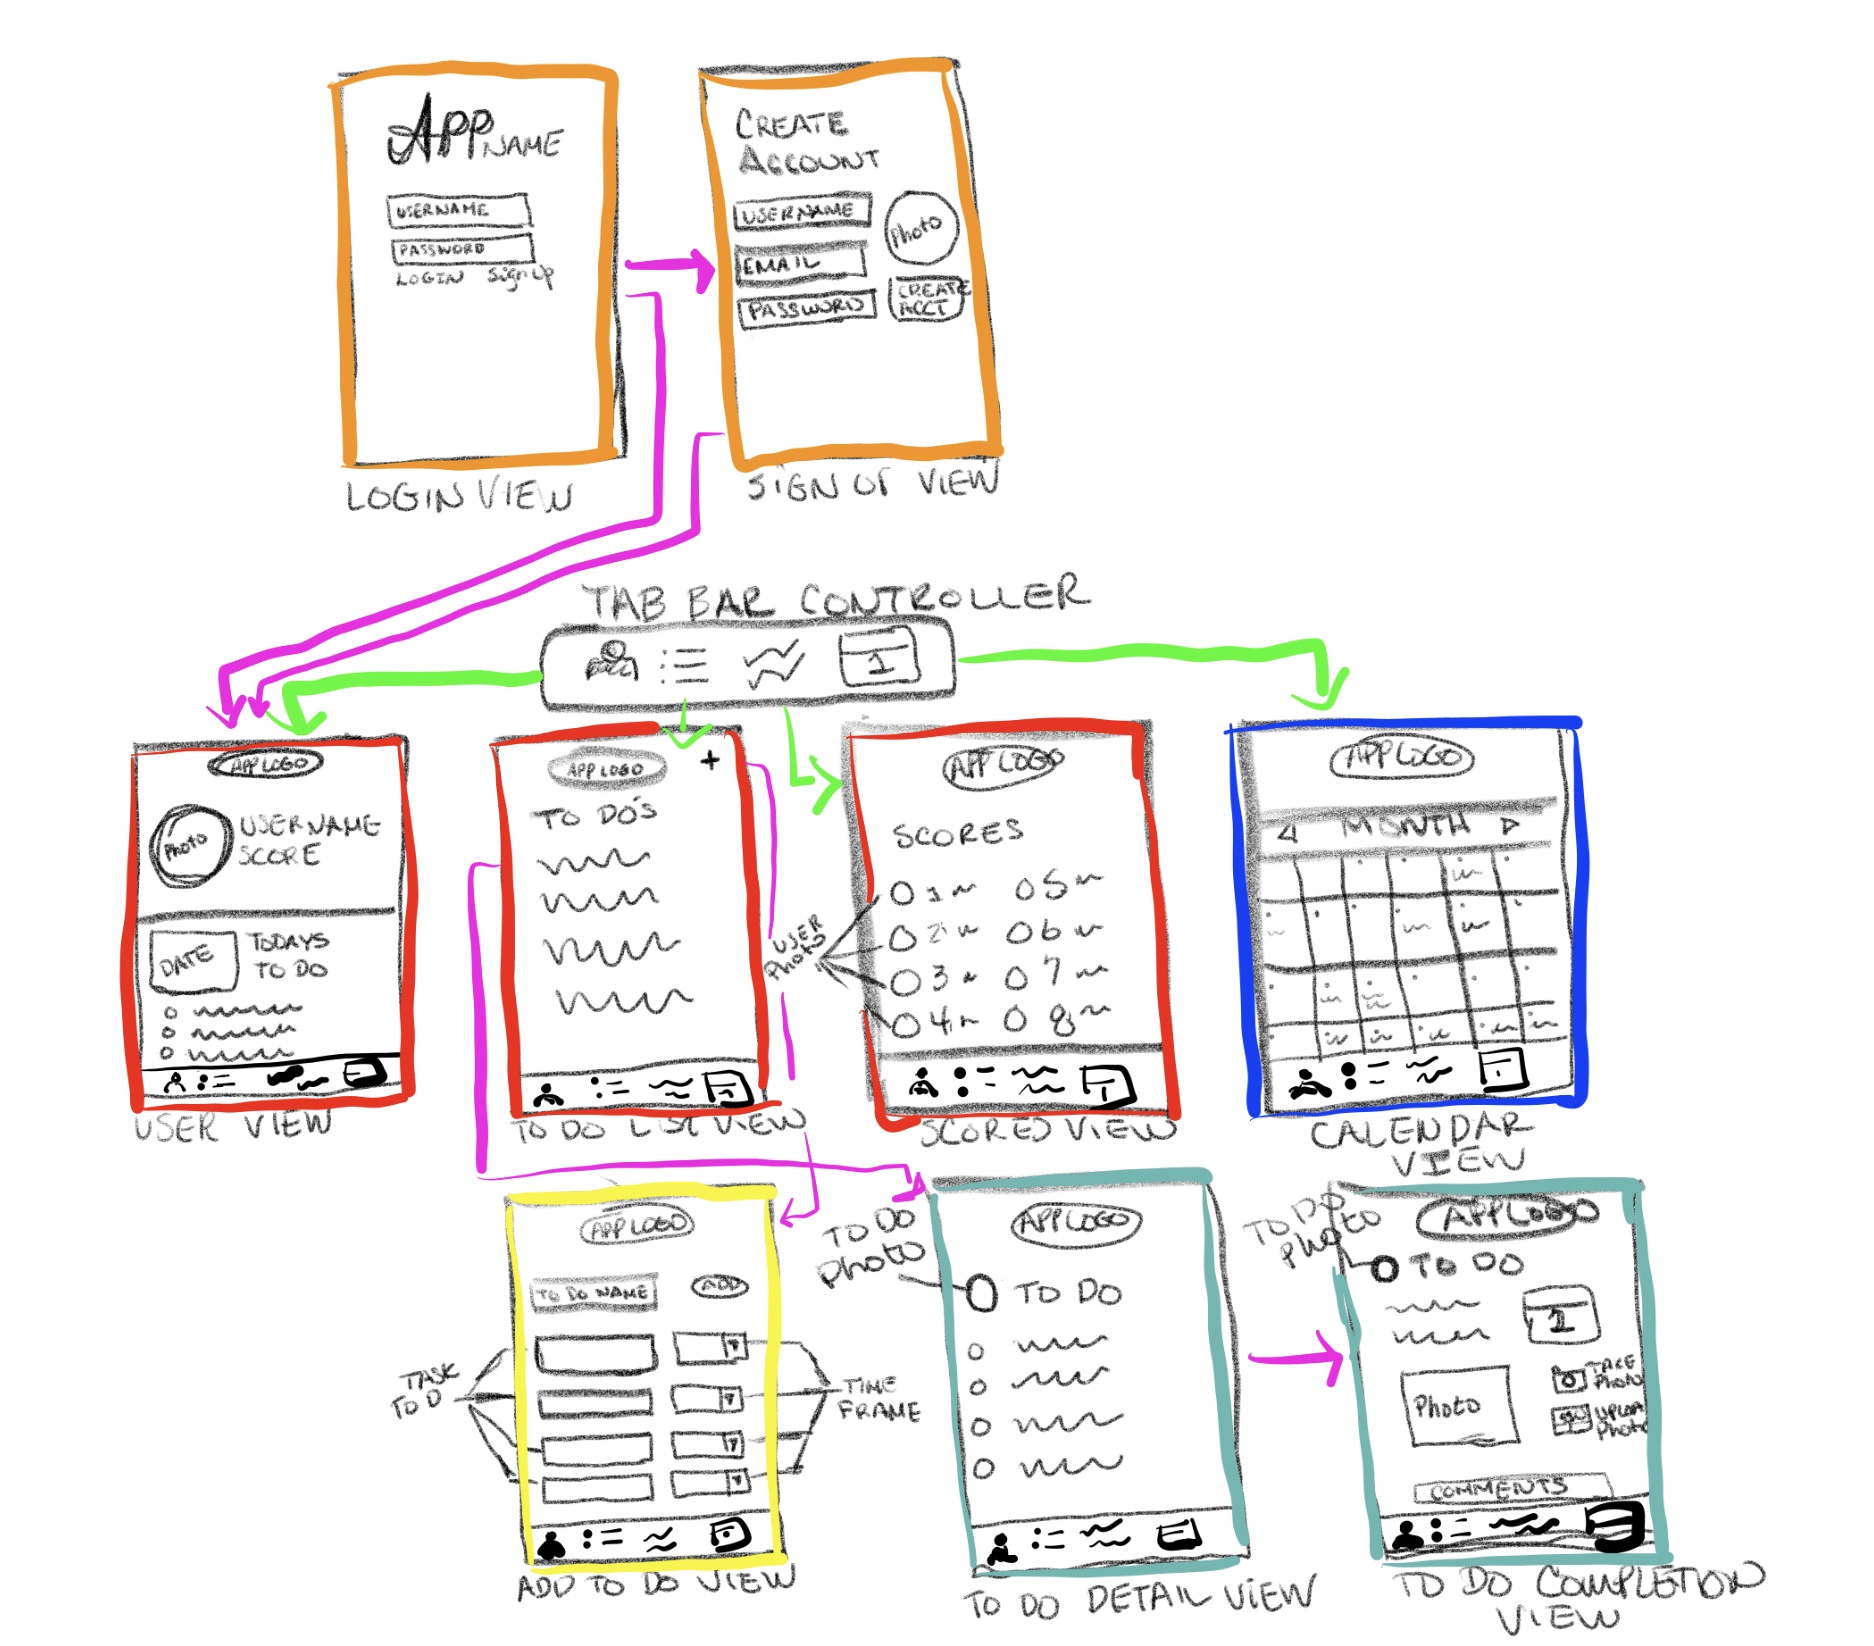 APP NAME
USERNAME
PASSWORD
LOGIN Sign Up
LOGIN VIEW
CREATE
ACCOUNT
USERNAME
EMAIL
PASSWORD
Photo
CREATE
ACCT
SIGN UP VIEW
TAB BAR CONTROLLER
1
APP LOGO
Photo
USERNAME
SCORE
DATE
TODAYS
TO DO
USER VIEW
APP LOGO
+
TO DO'S
TO DO LIST VIEW
USER
Photo
APP LOGO
SCORES
1
2
3
4
5
6
7
8
SCORES VIEW
APP LOGO
MONTH
CALENDAR
VIEW
APP LOGO
TO DO NAME
ADD
TASK
TO D
TIME
FRAME
ADD TO DO VIEW
TO DO
Photo
APP LOGO
TO DO
TO DO DETAIL VIEW
TO DO
Photo
APP LOGO
TO DO
1
Photo
TAKE
Photo
UPLOA
Photo
COMMENTS
TO DO COMPLETION
VIEW